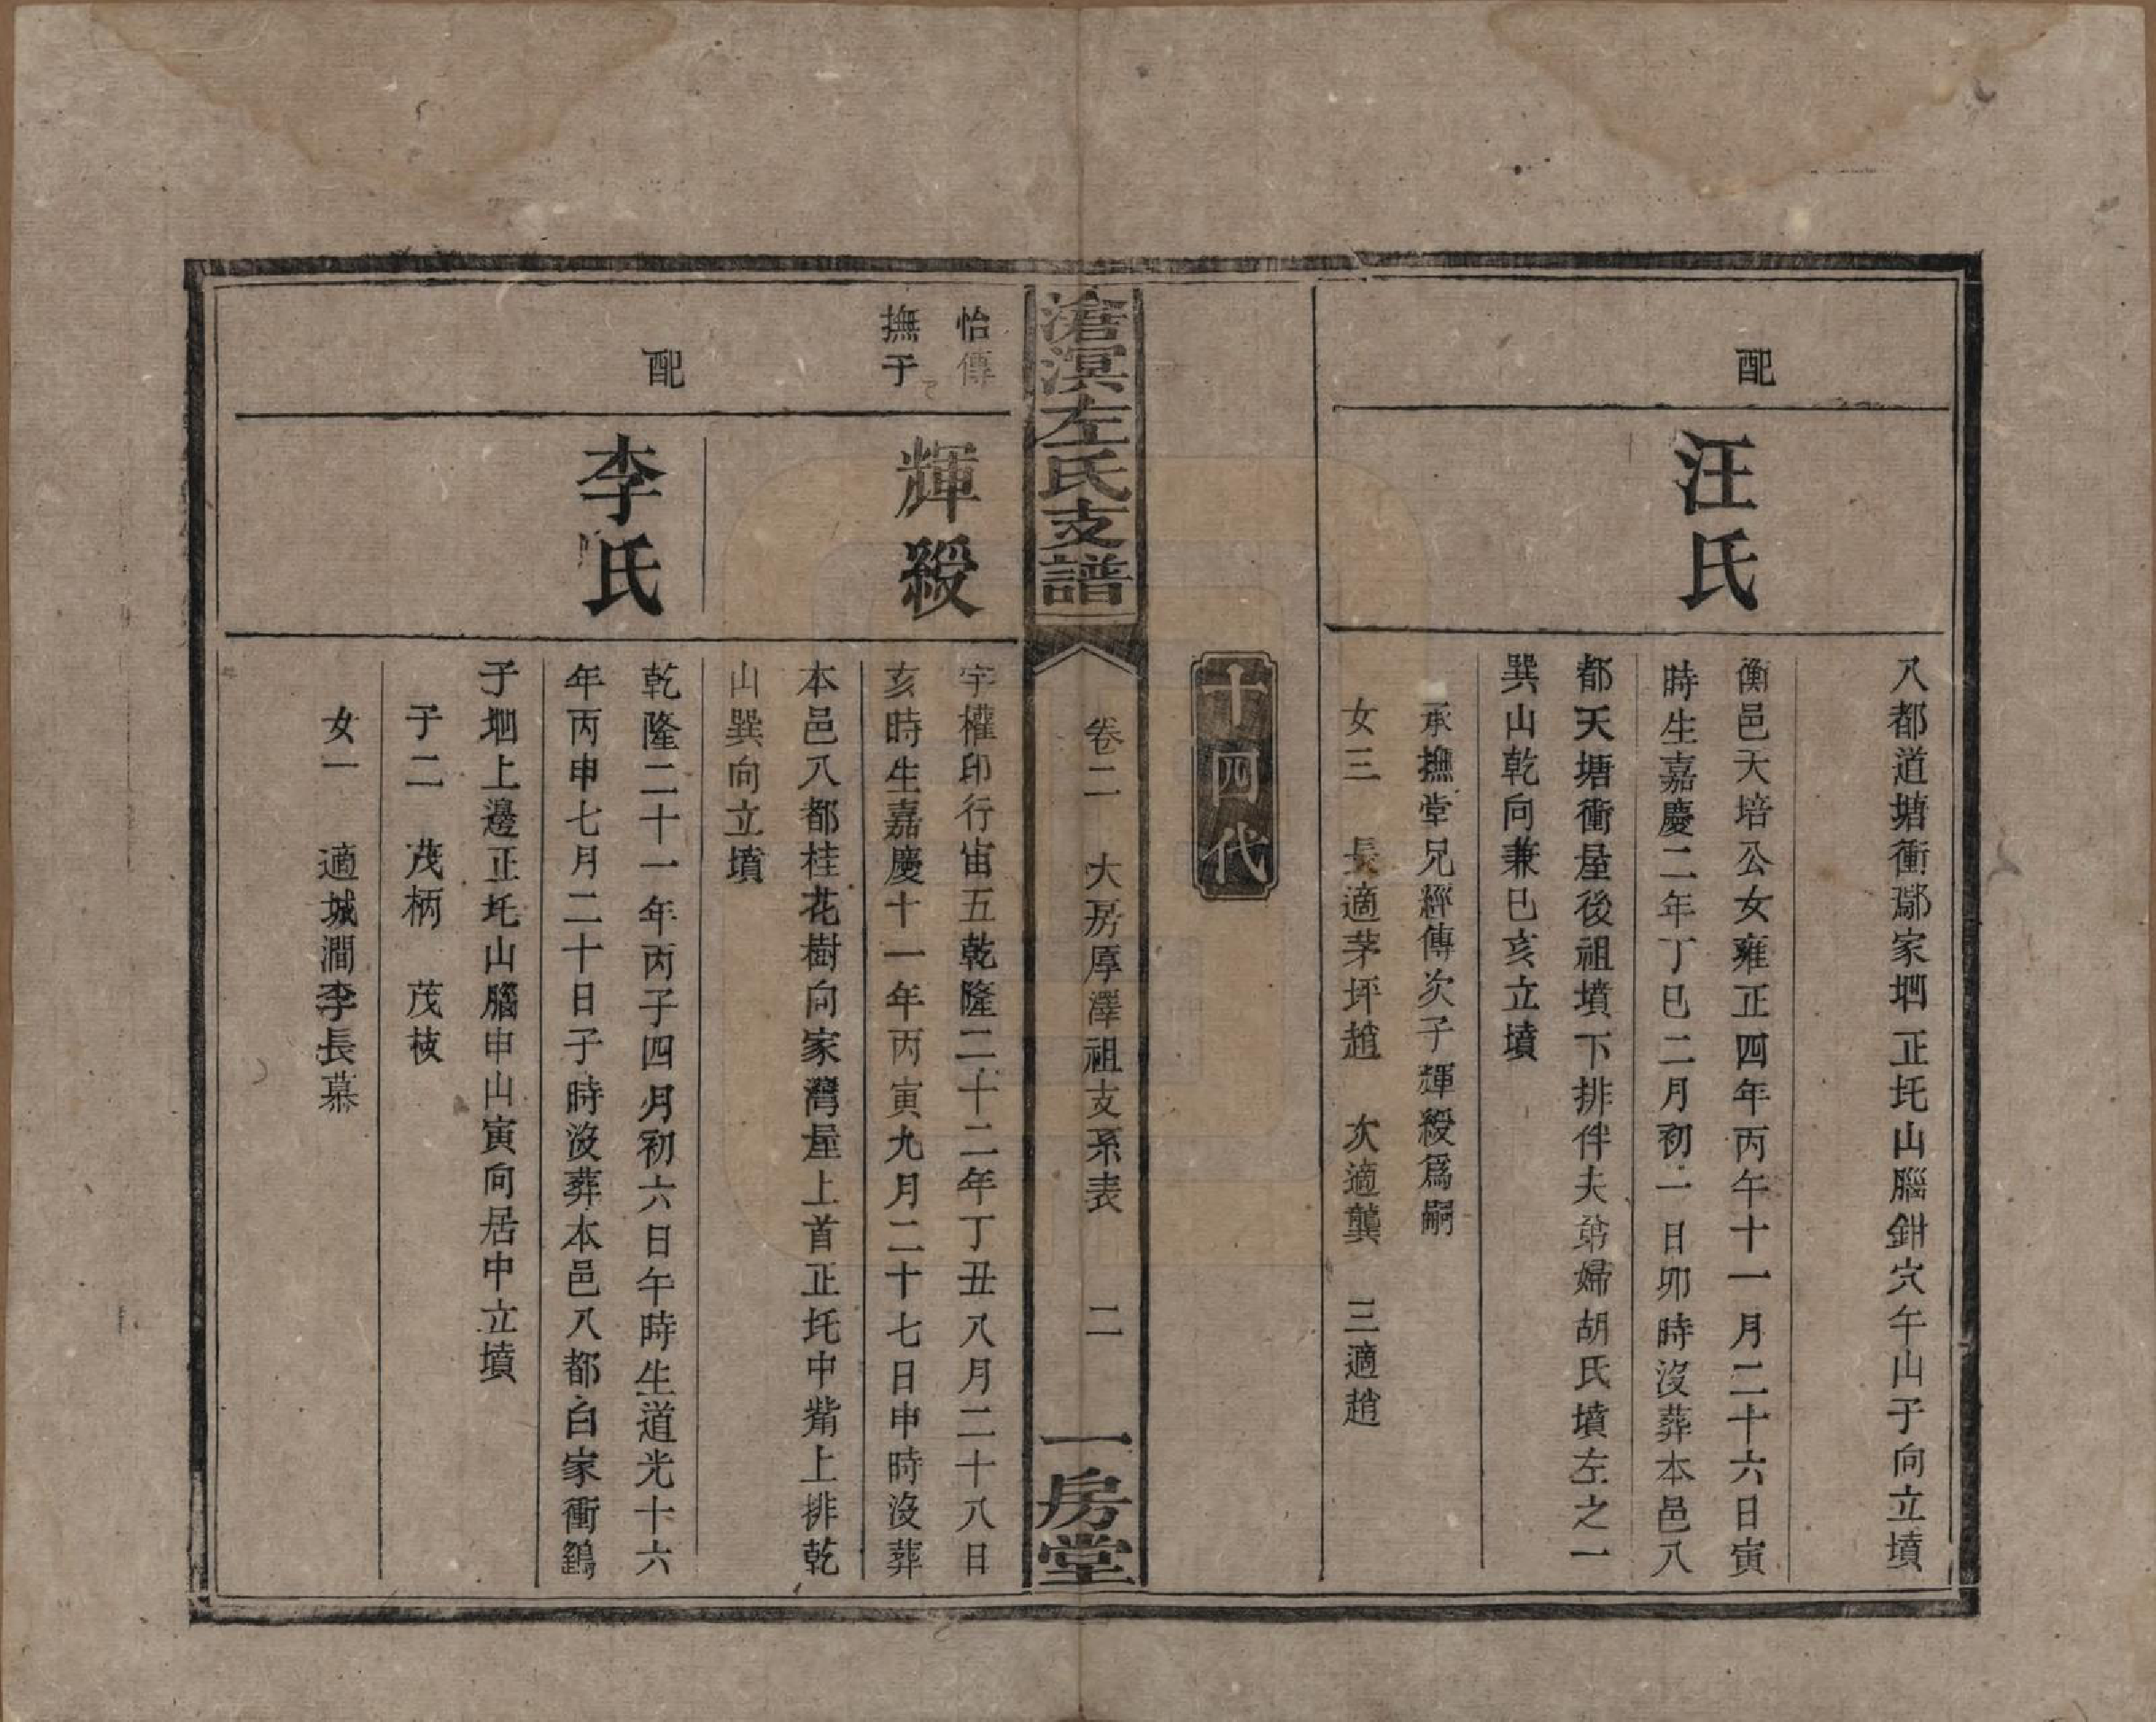 八都道塘衝鄢家垇正圫山腦鉗穴午山子向立墳
配
汪氏
衡邑天培公女雍正四年丙午十一月二十六日寅
時生嘉慶二年丁巳二月初一日卯時沒葬本邑八
都天塘衝屋後祖墳下排伴夫弟婦胡氏墳左之一
巽山乾向兼巳亥立墳
承撫堂兄經傳次子輝綬爲嗣
女三 長適茅坪趙 次適龔 三適趙
十四代
滄溟左氏支譜
卷二 大房厚澤祖支系表 二
一房堂
怡傳
撫子
輝綬
字權印行宙五乾隆二十二年丁丑八月二十八日
亥時生嘉慶十一年丙寅九月二十七日申時沒葬
本邑八都桂花樹向家灣屋上首正圫中觜上排乾
山巽向立墳
配
李氏
乾隆二十一年丙子四月初六日午時生道光十六
年丙申七月二十日子時沒葬本邑八都白家衝鷂
子垇上邊正圫山腦申山寅向居中立墳
子二 茂柄 茂枝
女一 適城澗李長慕